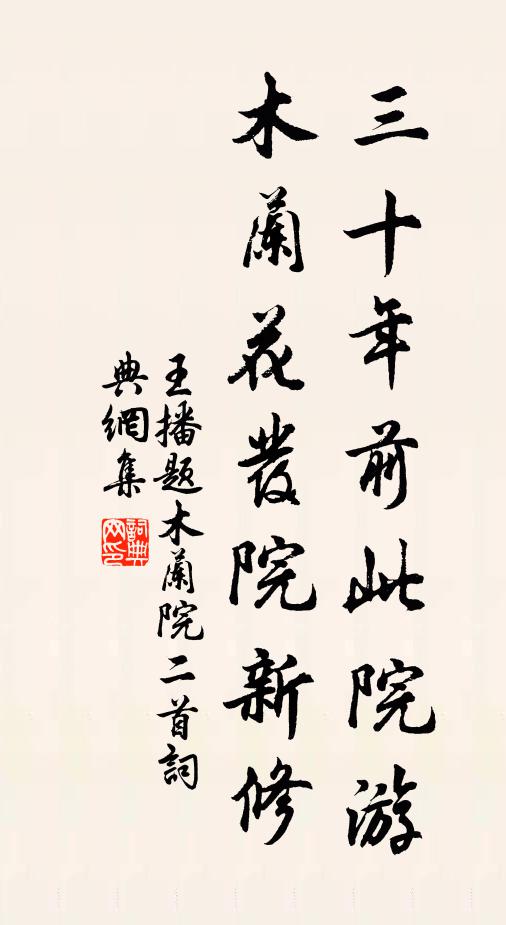 三十年前此院游
木蘭花發院新修
王播題木蘭院二首詞
典網集
詞典網印